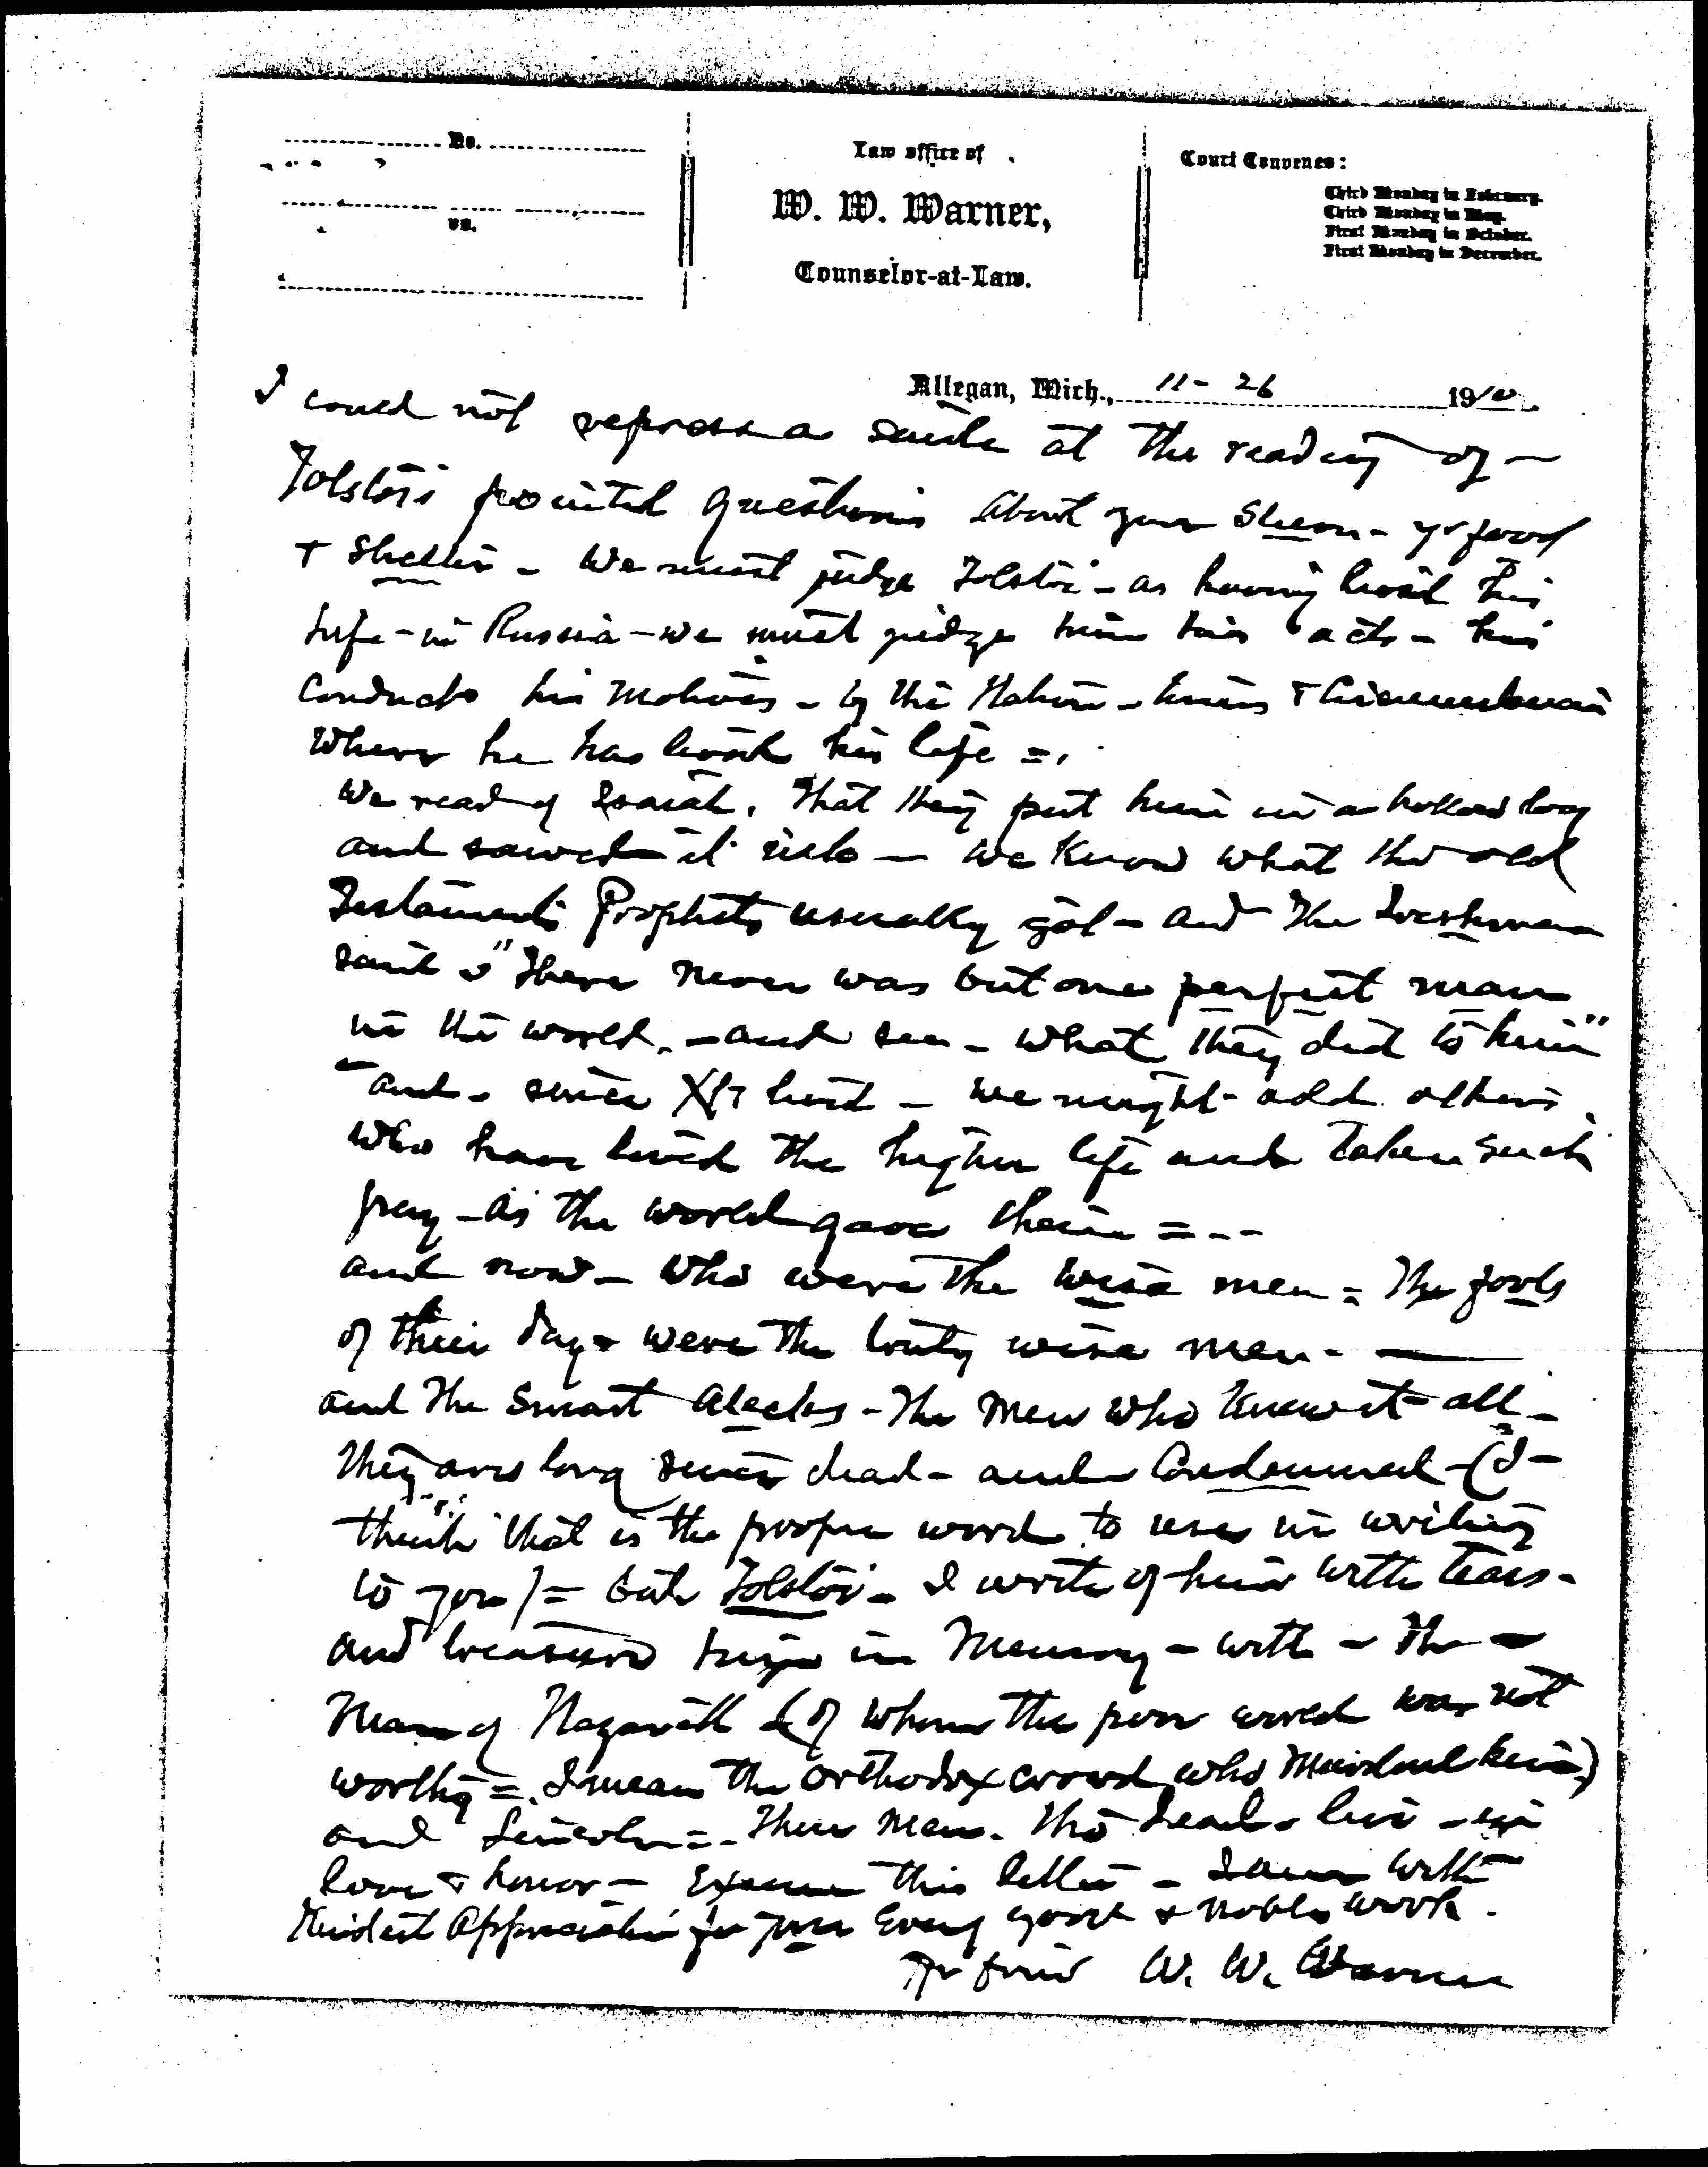 No.
vs.
Law office of
W. W. Warner,
Counselor-at-Law.
Court Convenes:
Third Monday in February.
Third Monday in May.
First Monday in October.
First Monday in December.
Allegan, Mich., 11-26 1910.
I could not repress a smile at the reading of -
Tolstoi pointed questions about your Sleep - yr food
+ Shelter - We must judge Tolstoi - as having lived his
life - in Russia - we must judge him his acts - his
Conduct his Motives - by the Nation - times +
Where he has lived his life =.
We read of Isaiah, that they put him in a hollow log
and sawed it into - We Know what the old
Testament Prophets usually got - and The Irishman
said "There never was but one perfect man
in the world. - and see - what they did to him"
- and - since Xt lived - we might add others
who have lived the higher life and taken such
pay - as the world gave them = --
and now - Who were the wise men = The fools
of their day - were the truly wise men -
and The Smart Alecks - The Men who knew it all -
they are long since dead - and Condemned - (I -
think that is the proper word to use in writing
to you) = but Tolstoi - I write of him with tears -
and treasure him in Memory - with - the -
Man of Nazareth (of whom the poor world was not
worthy = I mean The Orthodox crowd who Murdered him)
and Lincoln = - These Men. tho dead - live - in
love + honor - Excuse this letter - I am with
Kindest Appreciation for your Every good + noble work.
Yr friend W. W. Warner